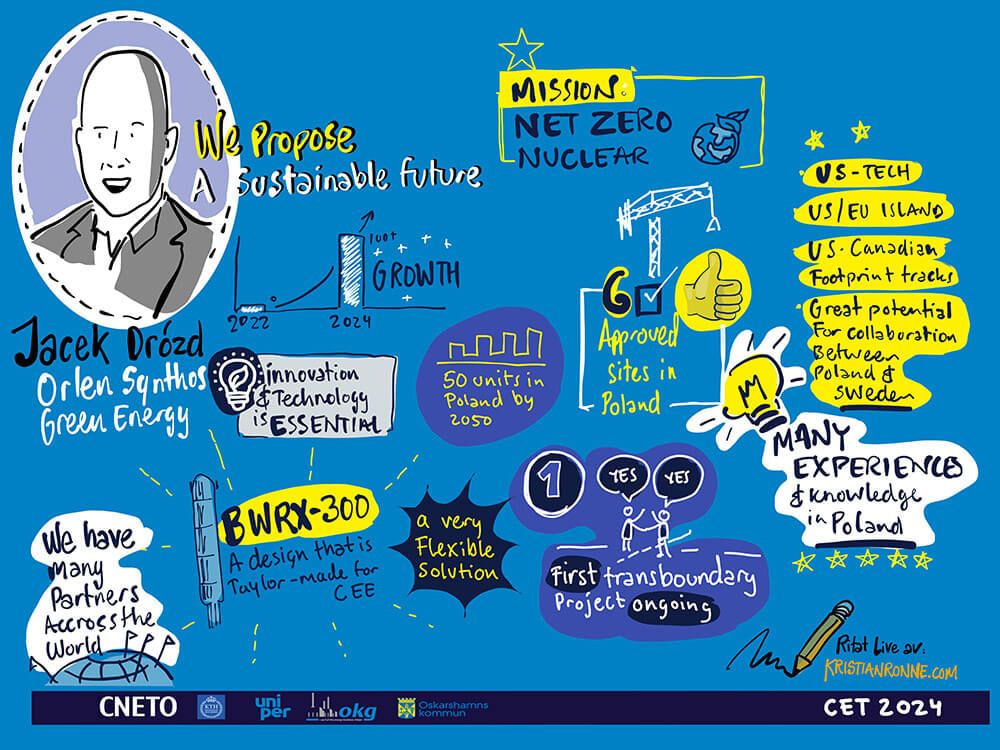 We Propose
A Sustainable future
MISSION:
NET ZERO
NUCLEAR
100+
GROWTH
2022
2024
Jacek Drózd
Orlen Synthos
Green Energy
innovation
& Technology
is ESSENTIAL
50 units in
Poland by
2050
6
Approved
Sites in
Poland
US-TECH
US/EU ISLAND
US-Canadian
Footprint tracks
Great potential
For collaboration
Between
Poland &
Sweden
MANY
EXPERIENCES
& knowledge
in Poland
BWRX-300
A design that is
Taylor-made for
CEE
a very
Flexible
Solution
1
YES
YES
First transboundary
Project ongoing
We have
Many
Partners
Accross the
World
Ritat Live av:
KRISTIANRONNE.COM
CNETO
KTH
uni
per
okg
Oskarshamns
kommun
CET 2024